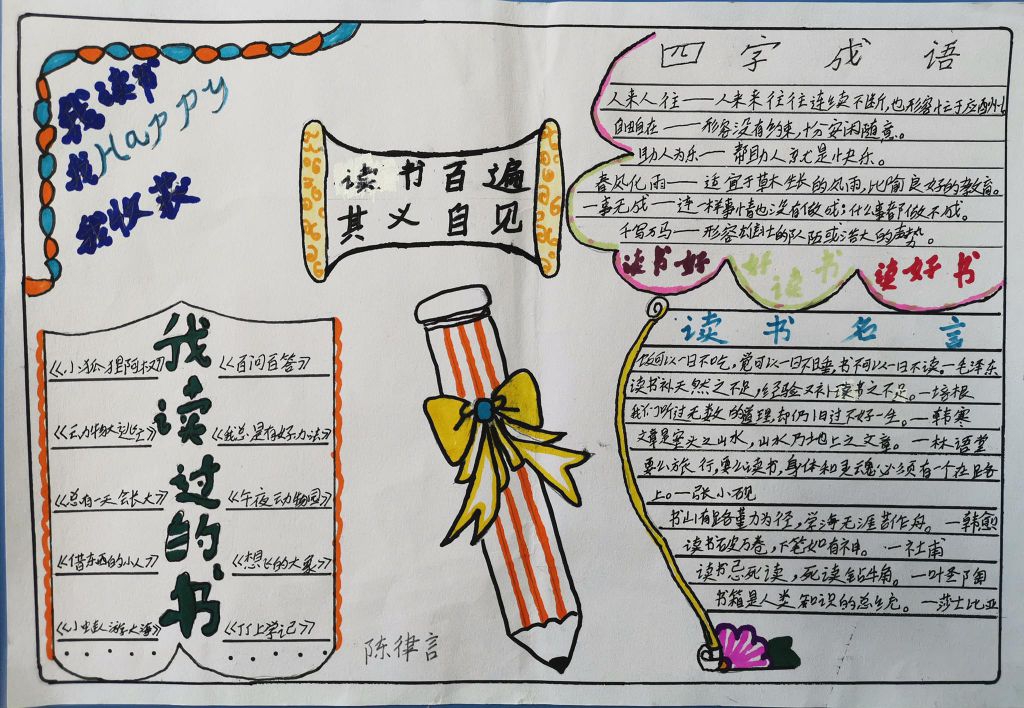 我读书
我Happy
我收获
读书百遍
其义自见
四字成语
人来人往——人来来往往连续不断,也形容忙于应酬。
自由自在——形容没有约束,十分安闲随意。
助人为乐——帮助人就是快乐。
春风化雨——适宜于草木生长的风雨,比喻良好的教育。
一事无成——连一样事情也没有做成;什么事都做不成。
千军万马——形容雄壮的队伍或浩大的声势。
读书好
好读书
读好书
我读过的书
《小狐狸阿权》
《百问百答》
《动物大迁徙》
《我总是有好办法》
《总有一天会长大》
《午夜动物园》
《借东西的小人》
《想飞的大象》
《小蛙人游大海》
《丁丁上学记》
陈律言
读书名言
饭可以一日不吃,觉可以一日不睡,书不可以一日不读。—毛泽东
读书补天然之不足,经验又补读书之不足。—培根
我们听过无数的道理,却仍旧过不好一生。—韩寒
文章是案头之山水,山水乃地上之文章。—林语堂
要么旅行,要么读书,身体和灵魂必须有一个在路
上。—张小砚
书山有路勤为径,学海无涯苦作舟。—韩愈
读书破万卷,下笔如有神。—杜甫
读书忌死读,死读钻牛角。—叶圣陶
书籍是人类知识的总统。—莎士比亚